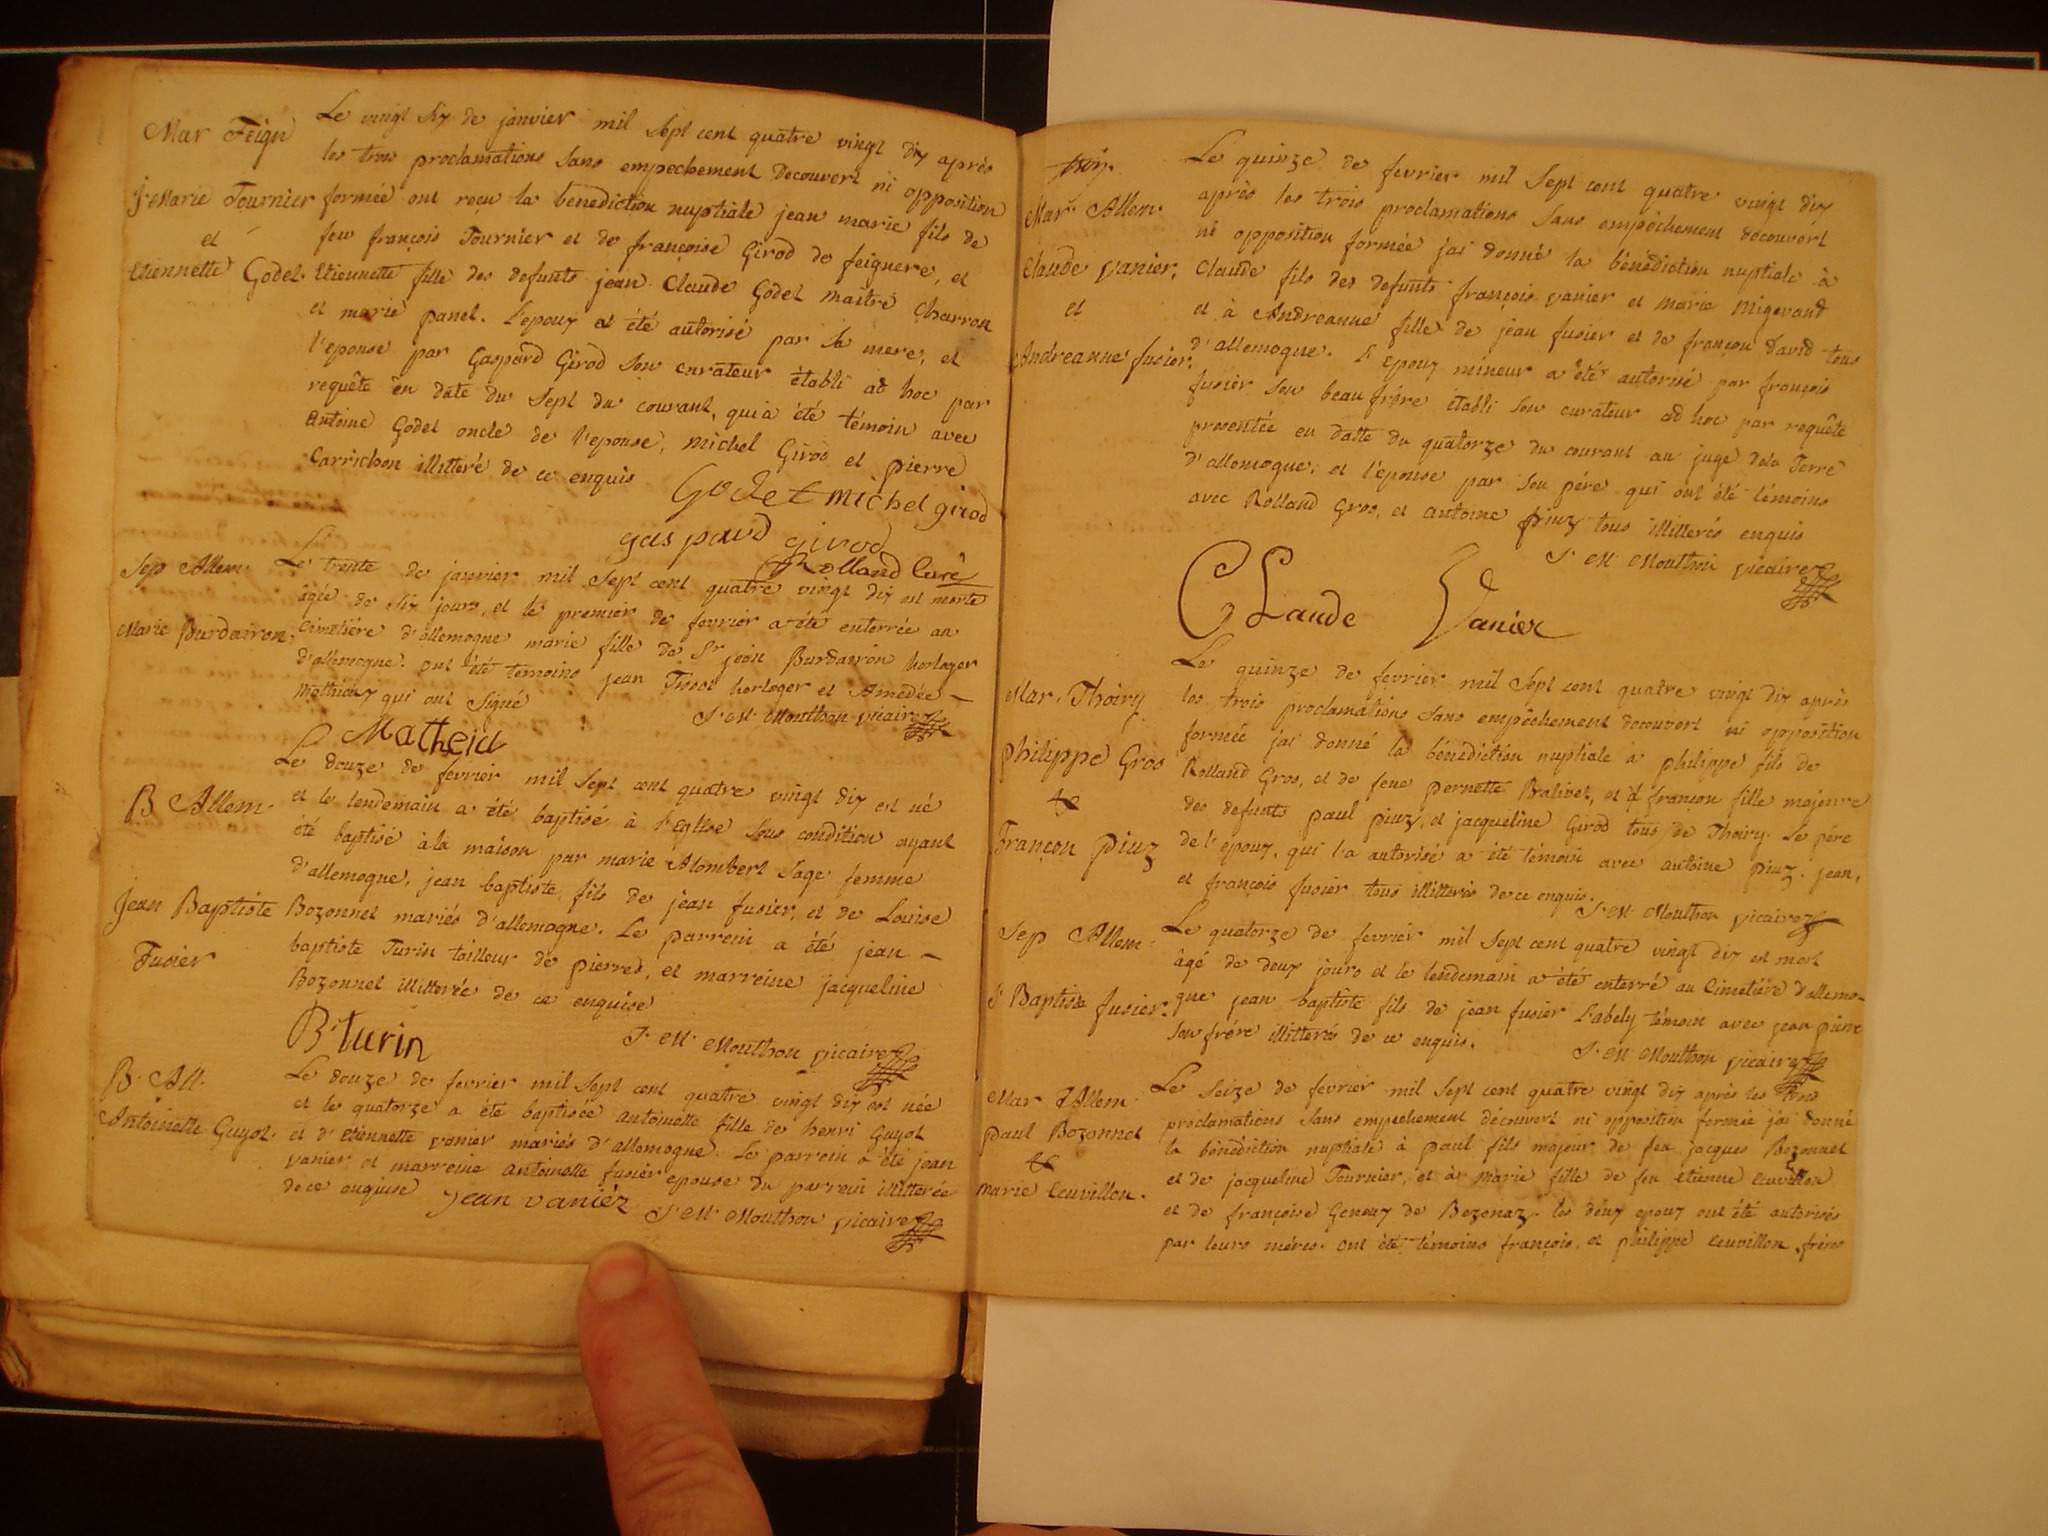 Mar Feign
J. Marie Tournier
et
Etiennette Godet.
Le vingt six de janvier mil sept cent quatre vingt dix après
les trois proclamations sans empechement decouvert ni opposition
formée ont reçu la benediction nuptiale jean marie fils de
feu françois Tournier et de françoise Girod de feignere, et
Etiennette fille des defunts jean Claude Godet maitre Charron
et marie panet. L'epoux a été autorisé par sa mere, et
l'epouse par Gaspard Girod son curateur établi ad hoc par
requête en date du sept du courant, qui a été témoin avec
Antoine Godet oncle de l'epouse, Michel Girod et pierre
Carrichon illitteré de ce enquis
Godet michel girod
gaspard girod
Rolland Curé
Sep Allem.
Marie Burdairon.
Le trente de janvier mil sept cent quatre vingt dix est morte
âgée de six jours, et le premier de fevrier a été enterrée au
Cimetiére d'allemogne marie fille de Sr jean Burdairon horloger
d'allemogne. ont été temoins jean Tissot horloger et Amedée
Mathieux qui ont signé
J. M. Mouthon vicaire
Matheid
B Allem.
Jean Baptiste
Fusier
Le douze de fevrier mil sept cent quatre vingt dix est né
et le lendemain a été baptisé à l'Eglise sous condition ayant
été baptisé à la maison par marie Alombert sage femme
d'allemogne, jean baptiste fils de jean fusier, et de Louise
Bozonnet mariés d'allemogne. Le parrein a été jean
baptiste Turin tailleur de pierres, et marreine jacqueline
Bozonnet illitterée de ce enquise
B. turin
J. M. Mouthon vicaire
B. All.
Antoinette Guyot.
Le douze de fevrier mil sept cent quatre vingt dix est née
et le quatorze a été baptisée antoinette fille de henri Guyot
et d'etiennette vanier mariés d'allemogne. Le parrein a été jean
vanier et marreine antoinette fusier epouse du parrein illitterée
de ce enquise jean vaniér J. M. Mouthon vicaire
Mar. Allem.
Claude vanier.
et
Andreanne fusier.
Le quinze de fevrier mil sept cent quatre vingt dix
après les trois proclamations sans empêchement decouvert
ni opposition formée j'ai donné la bénédiction nuptiale à
Claude fils des defunts françois vanier et marie Migerand
et à Andreanne fille de jean fusier et de françon david tous
d'allemogne. L'Epoux mineur a été autorisé par françois
fusier son beau frére établi son curateur ad hoc par requête
presentée en datte du quatorze du courant au juge dela Terre
d'allemogne; et l'epouse par son pére qui ont été témoins
avec Rolland Gros, et antoine piuz tous illitterés enquis
J. M. Mouthon vicaire
CLaude Vanier
Mar. Thoiry
philippe Gros
&
Françon piuz
Le quinze de fevrier mil sept cent quatre vingt dix après
les trois proclamations sans empêchement decouvert ni opposition
formée j'ai donné la bénédiction nuptiale à philippe fils de
Rolland Gros, et de feue pernette Balivet, et à françon fille majeure
des defunts paul piuz, et jacqueline Girod tous de Thoiry. Le pére
de l'epoux, qui l'a autorisé a été témoin avec antoine piuz. jean,
et françois fusier tous illitterés de ce enquis.
J. M. Mouthon vicaire
Sep Allem.
J. Baptiste fusier.
Le quatorze de fevrier mil sept cent quatre vingt dix est mort
âgé de deux jours et le lendemain a été enterré au Cimetiére d'allemo-
gne jean baptiste fils de jean fusier Labely témoin avec jean pierre
son frére illitterés de ce enquis.
J. M. Mouthon vicaire
Mar Allem.
paul Bozonnet
&
marie Cuvillon.
Le seize de fevrier mil sept cent quatre vingt dix après les trois
proclamations sans empechement découvert ni opposition formée j'ai donné
la bénédiction nuptiale à paul fils majeur de feu jacques Bozonnet
et de jacqueline Tournier, et à marie fille de feu étienne Cuvillon
et de françoise Genoux de Bezenaz. les deux epoux ont été autorisés
par leurs méres. ont été témoins françois, et philippe Cuvillon fréres